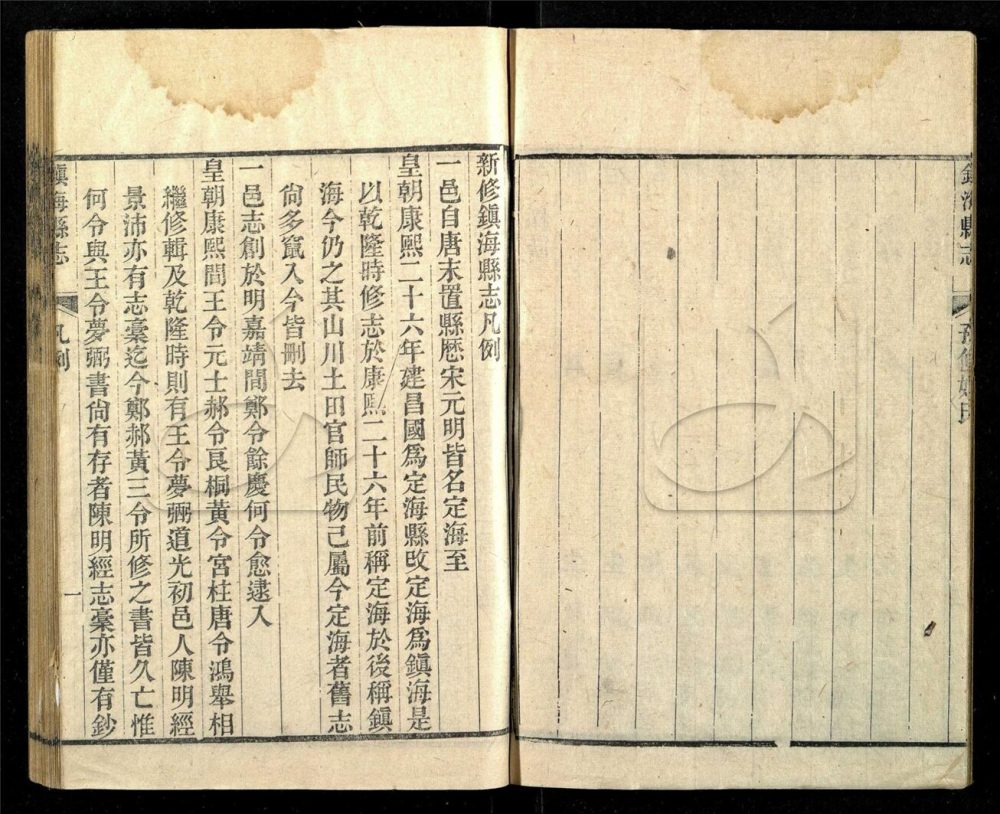 鎮海縣志
新修鎮海縣志凡例
一邑自唐末置縣歷宋元明皆名定海至
皇朝康熙二十六年建昌國爲定海縣改定海爲鎮海是
以乾隆時修志於康熙二十六年前稱定海於後稱鎮
海今仍之其山川土田官師民物已屬今定海者舊志
尙多竄入今皆刪去
一邑志創於明嘉靖間鄭令餘慶何令愈逮入
皇朝康熙間王令元士郝令良桐黃令宮柱唐令鴻舉相
繼修輯及乾隆時則有王令夢弼道光初邑人陳明經
景沛亦有志稾迄今鄭郝黃三令所修之書皆久亡惟
何令與王令夢弼書尙有存者陳明經志稾亦僅有鈔
鎮海縣志
凡例
一